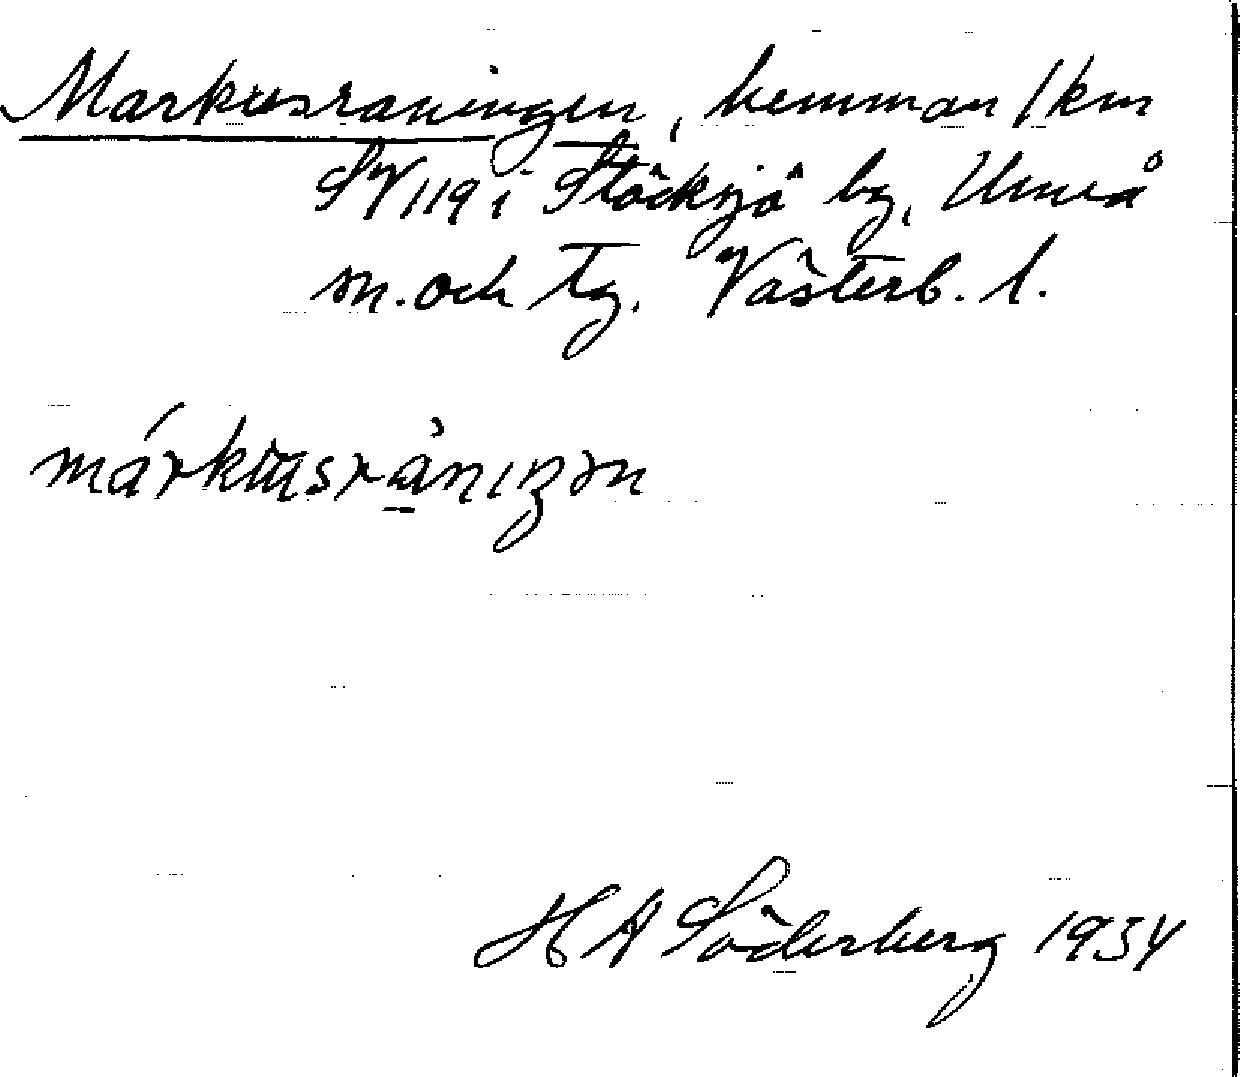 Markusraningen, hemman 1 km
SV 119 i Stöcksjö by, Umeå
sn. och tg. Västerb. l.
márkusråniŋən
H A Söderberg 1934